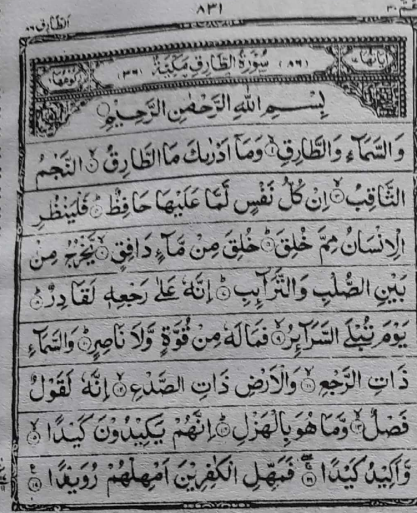 الطارق ٨٦
٨٣١
عم ٣٠
اٰياتها
(٨٦) سُوْرَةُ الطَّارِقِ مَكِّيَّةٌ (٣٦)
رکوعها
بِسْمِ اللّٰهِ الرَّحْمٰنِ الرَّحِيْمِ
وَالسَّمَآءِ وَالطَّارِقِ ۙ وَمَآ اَدْرٰىكَ مَا الطَّارِقُ ۙ النَّجْمُ
الثَّاقِبُ ۙ اِنْ كُلُّ نَفْسٍ لَّمَّا عَلَيْهَا حَافِظٌ ؕ فَلْيَنْظُرِ
الْاِنْسَانُ مِمَّ خُلِقَ ؕ خُلِقَ مِنْ مَّآءٍ دَافِقٍ ۙ يَّخْرُجُ مِنْۢ
بَيْنِ الصُّلْبِ وَالتَّرَآئِبِ ؕ اِنَّهٗ عَلٰى رَجْعِهٖ لَقَادِرٌ ؕ
يَوْمَ تُبْلَى السَّرَآئِرُ ۙ فَمَا لَهٗ مِنْ قُوَّةٍ وَّلَا نَاصِرٍ ؕ وَالسَّمَآءِ
ذَاتِ الرَّجْعِ ۙ وَالْاَرْضِ ذَاتِ الصَّدْعِ ۙ اِنَّهٗ لَقَوْلٌ
فَصْلٌ ۙ وَّمَا هُوَ بِالْهَزْلِ ؕ اِنَّهُمْ يَكِيْدُوْنَ كَيْدًا ۙ
وَّاَكِيْدُ كَيْدًا ۚ فَمَهِّلِ الْكٰفِرِيْنَ اَمْهِلْهُمْ رُوَيْدًا